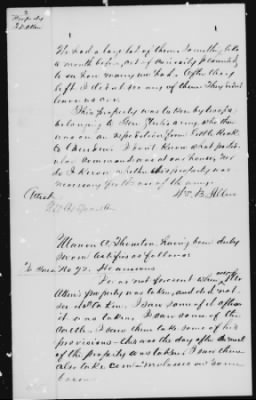 He had a large lot of them. Something like
a month before, out of curiosity I counted
to see how many we had. After they
left I did not see any of them. They didn't
leave us one.
This property was taken by troops
belonging to Gen. army who then
was on an expedition from Little Rock
to Camden. I don't know what particular
command was at our house, nor
do I know whether this property was
necessary for the use of the army.
Attest
W. B. Allen
Manon A. Thornton having been duly
sworn testifies as follows:
To Inter. No 72. He answers
I was not present when
Allen's property was taken, and did not
see it taken. I saw some of it after
it was taken. I saw some of the
cattle. I saw them take some of his
provisions - this was the day after the most
of the property was taken. I saw them
also take corn molasses and some
bacon.